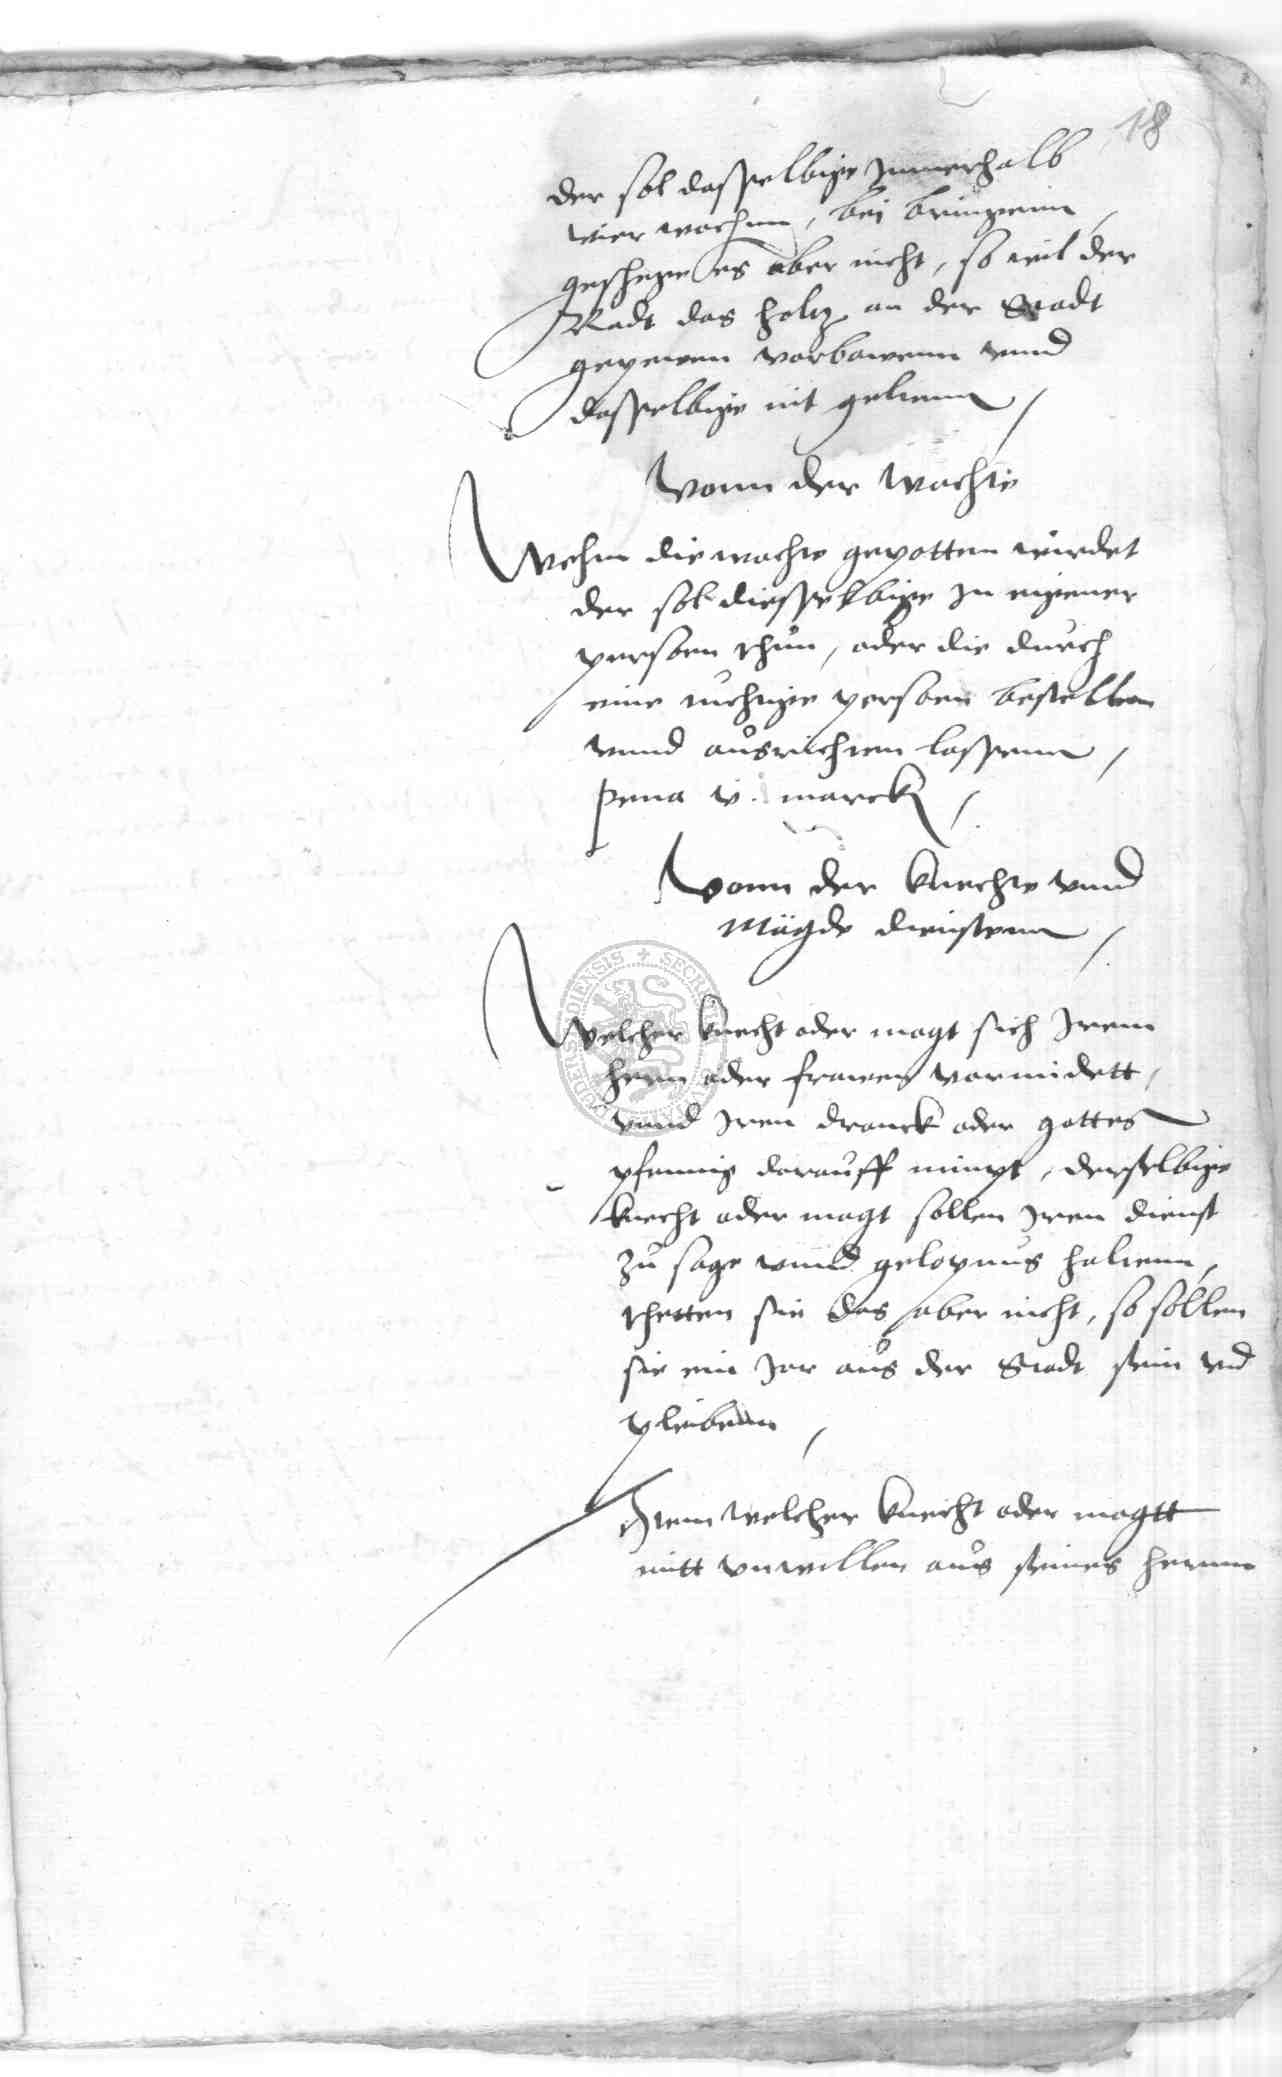 18
der sol dasselbige Innerhalb
vier wochenn, bei bringenn,
geschege es aber nicht, so wil der
Radt das holtz an der Stadt
gepewen vorbawenn vnnd
dasselbige nit geltenn
Vonn der wachte
Wehm die wachte gepotten wirdet
der sol diesselbige In eigener
persoen thun, oder die durch
eine tuchtige persoen bestellen
vnnd ausrichten lassenn,
pena v. marck
Vonn der knechte vnnd
Mägde dienstenn
Welcher knecht oder magt sich Irem
hern oder frawen vormidett,
vnnd Iren dranck oder gottes
pfennig darauff nimpt, derselbige
knecht oder magt sollen Iren dienst
zu sage vnnd gelopnus haltenn,
thetten sie das aber nicht, so sollen
sie ein Jar aus der Stadt sein vnd
pleibenn
Item welcher knecht oder magtt
mitt vnwillen aus seines herrnn